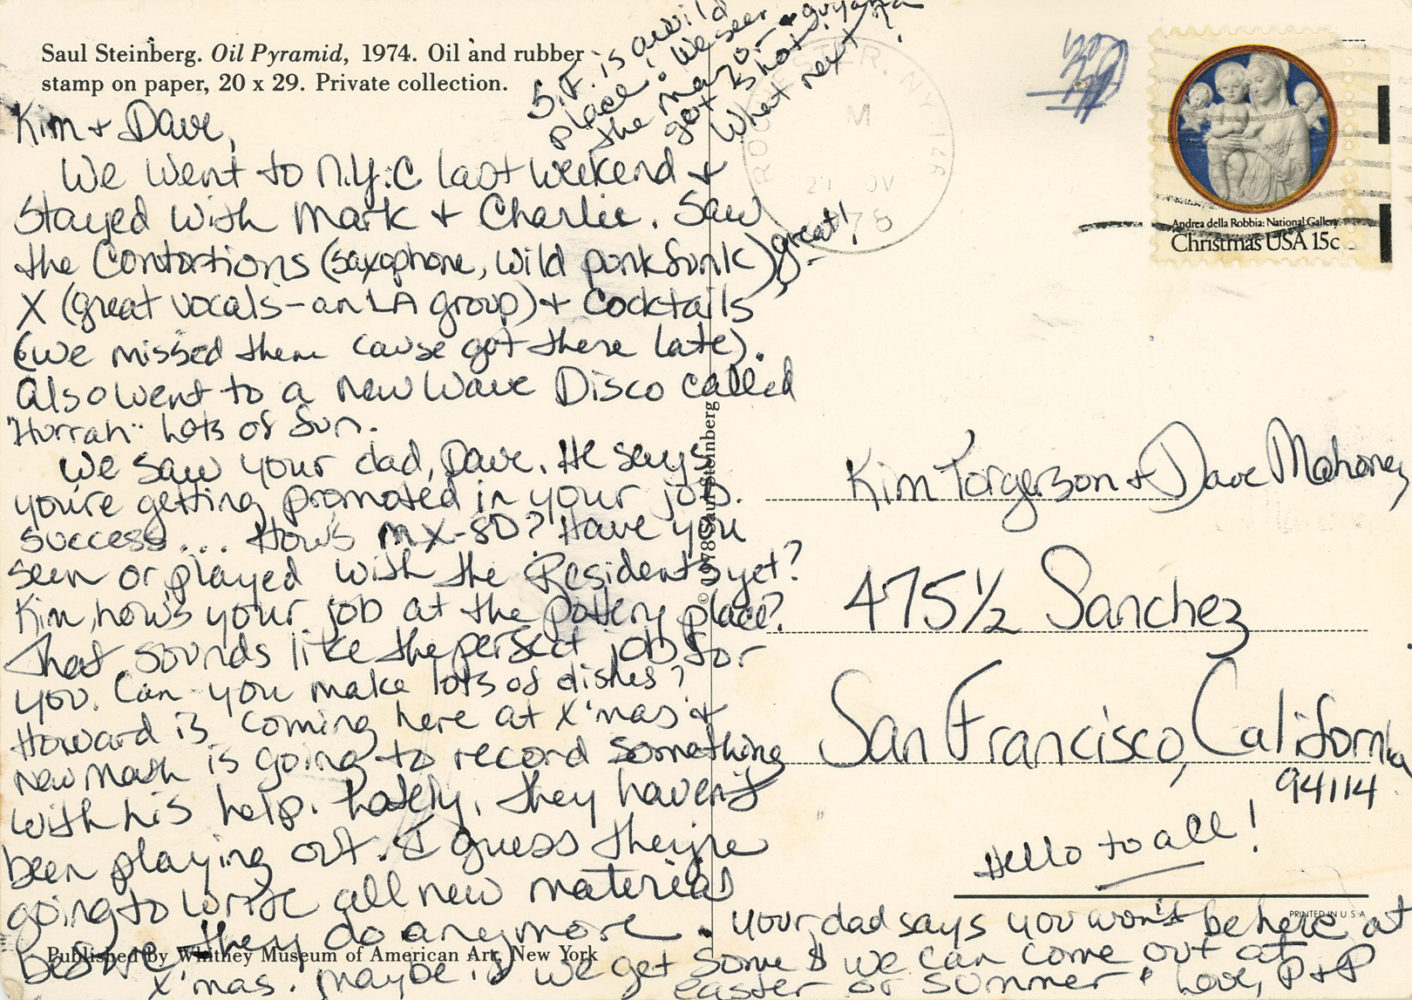 Saul Steinberg. Oil Pyramid, 1974. Oil and rubber
stamp on paper, 20 x 29. Private collection.
S.F. is a wild
place. We seen
the mayor
got shot.
What next?
+ guyana
ROCHESTER, N.Y. 146
M
27 NOV
Andrea della Robbia: National Gallery
Christmas USA 15c
Kim + Dave,
We went to N.Y.C last weekend +
stayed with Mark + Charlie. Saw
the Contortions (saxophone, wild punk funk) great!
X (great vocals - an LA group) + Cocktails
(we missed them cause got there late).
Also went to a New Wave Disco called
"Hurrah" Lots of fun.
We saw your dad, Dave. He says
you're getting promoted in your job.
success... How's MX-80? Have you
seen or played with the Residents yet?
Kim, how's your job at the pottery place?
That sounds like the perfect job for
you. Can you make lots of dishes?
Howard is coming here at X'mas +
New Math is going to record something
with his help. Lately, they haven't
been playing out. I guess they're
going to write all new material
before they do anymore. Your dad says you won't be here at
X'mas. Maybe if we get some $ we can come out at
easter or summer. Love, P + P
© 1978 Saul Steinberg
Kim Torgerson + Dave Mahoney
475½ Sanchez
San Francisco, California
94114
Hello to all!
PRINTED IN U S A
Published by Whitney Museum of American Art, New York